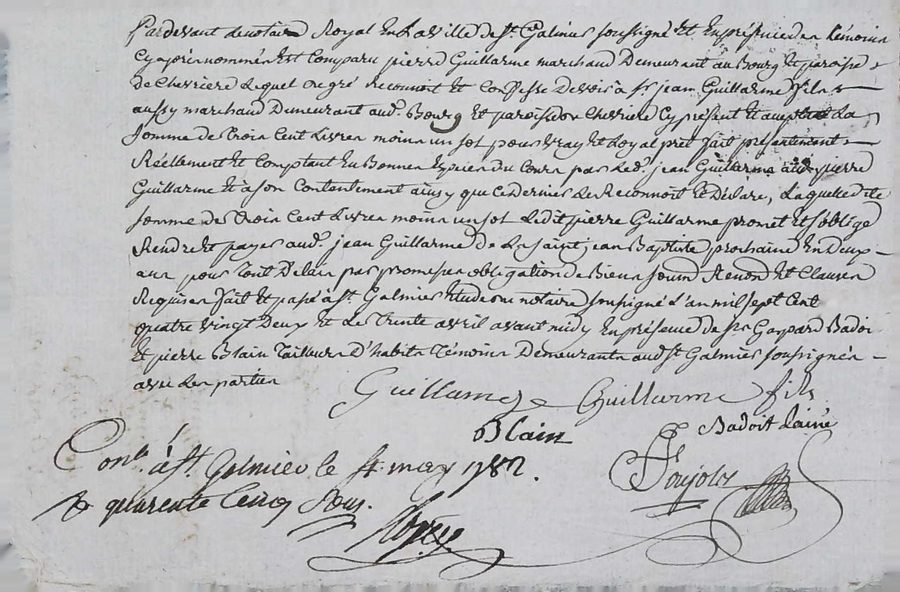 Pardevant le notaire Royal En La ville de St. Galmier soussigné Et En présence des témoins
Cy après nommés Est Comparu pierre Guillarme marchand Demeurant au Bourg Et paroisse
de Chevriere Lequel De gré reconnoit Et Confesse Devoir à sr. jean Guillarme fils
aussy marchand Demeurant aud. Bourg Et paroisse de Chevriere Cy présent Et acceptant La
somme de trois Cent Livres moins un sol pour vray Et Loyal prêt fait présentement
Réellement Et Comptant En Bonnes Espèces du Cours par Led. jean Guillarme aud. pierre
Guillarme Et à son Contentement ainsy que Ce dernier Le Reconnoit Et Déclare, Laquelle dite
somme de trois Cent Livres moins un sol Ledit pierre Guillarme promet Et s'oblige
Rendre Et payer aud. jean Guillarme de La saint jean Baptiste prochaine En Deux
ans pour tout Délais par promesses obligation de Biens soum. Renonc. Et Clauses
Requises fait Et passé à St. Galmier Etude du notaire soussigné L'an mil sept Cent
quatre vingt Deux Et Le trente avril avant midy En présence de srs. Gaspard Badoit
Et pierre Blain tailleurs D'habits témoins Demeurants aud. St. Galmier soussignés
avec Les parties
Guillarme Guillarme fils
Blain Badoit L'ainé
Conlé à St. Galmier le 4 may 1782.
quarente Cinq Sous.
Poujols